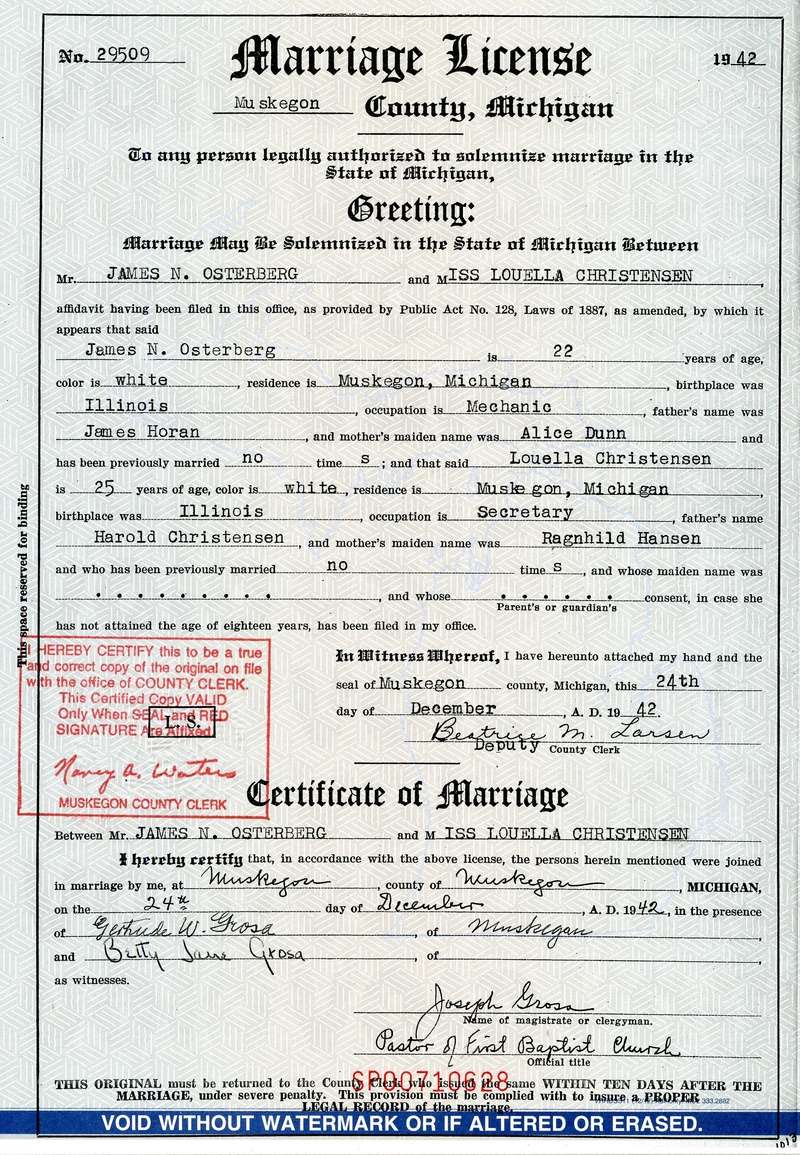 No. 29509 Marriage License 1942
Muskegon County, Michigan
To any person legally authorized to solemnize marriage in the
State of Michigan,
Greeting:
Marriage May Be Solemnized in the State of Michigan Between
Mr. JAMES N. OSTERBERG and MISS LOUELLA CHRISTENSEN,
affidavit having been filed in this office, as provided by Public Act No. 128, Laws of 1887, as amended, by which it
appears that said
James N. Osterberg is 22 years of age,
color is white, residence is Muskegon, Michigan, birthplace was
Illinois, occupation is Mechanic, father's name was
James Horan, and mother's maiden name was Alice Dunn and
has been previously married no time s; and that said Louella Christensen
is 25 years of age, color is white, residence is Muskegon, Michigan,
birthplace was Illinois, occupation is Secretary, father's name
Harold Christensen, and mother's maiden name was Ragnhild Hansen
and who has been previously married no time s, and whose maiden name was
, and whose consent, in case she
Parent's or guardian's
has not attained the age of eighteen years, has been filed in my office.
This space reserved for binding
I HEREBY CERTIFY this to be a true
and correct copy of the original on file
with the office of COUNTY CLERK.
This Certified Copy VALID
Only When SEAL and RED
SIGNATURE Are Affixed
L. S.
Nancy A. Waters
MUSKEGON COUNTY CLERK
In Witness Whereof, I have hereunto attached my hand and the
seal of Muskegon county, Michigan, this 24th
day of December, A. D. 1942.
Beatrice M. Larsen
Deputy County Clerk
Certificate of Marriage
Between Mr. JAMES N. OSTERBERG and M ISS LOUELLA CHRISTENSEN
I hereby certify that, in accordance with the above license, the persons herein mentioned were joined
in marriage by me, at Muskegon, county of Muskegon, MICHIGAN,
on the 24th day of December, A. D. 1942, in the presence
of Gertrude W. Grosa, of Muskegan,
and Betty Jane Grosa, of ,
as witnesses.
Joseph Grosa
Name of magistrate or clergyman.
Pastor of First Baptist Church
Official title
SP00710628
THIS ORIGINAL must be returned to the County Clerk who issued the same WITHIN TEN DAYS AFTER THE
MARRIAGE, under severe penalty. This provision must be complied with to insure a PROPER
LEGAL RECORD of the marriage.
VOID WITHOUT WATERMARK OR IF ALTERED OR ERASED.